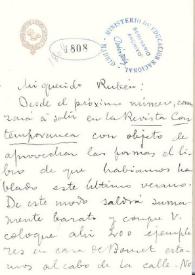 1808
MINISTERIO DE EDUCACION NACIONAL
Mi querido Rubén:
Desde el próximo número, comen
zará a salir en la Revista Con
temporanea con objeto de
aprovechar las formas el li
bro de que habíamos ha
blado este último verano.
De este modo saldrá suma
mente barato y conque V.
coloque ahí 200 ejempla
res en casa de Bonnet esta
mos al cabo de la calle. No